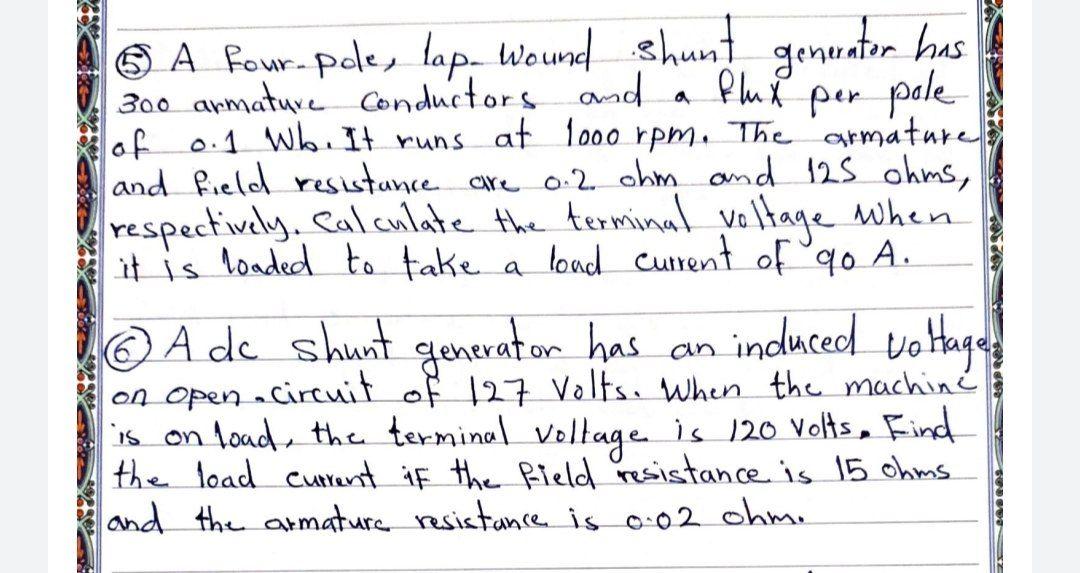 ⑤ A four-pole, lap-wound shunt generator has
300 armature conductors and a flux per pole
of 0.1 Wb. It runs at 1000 rpm. The armature
and field resistance are 0.2 ohm and 125 ohms,
respectively. Calculate the terminal voltage when
it is loaded to take a load current of 90 A.
⑥ A dc shunt generator has an induced voltage
on open-circuit of 127 Volts. When the machine
is on load, the terminal voltage is 120 volts. Find
the load current if the field resistance is 15 ohms
and the armature resistance is 0.02 ohm.